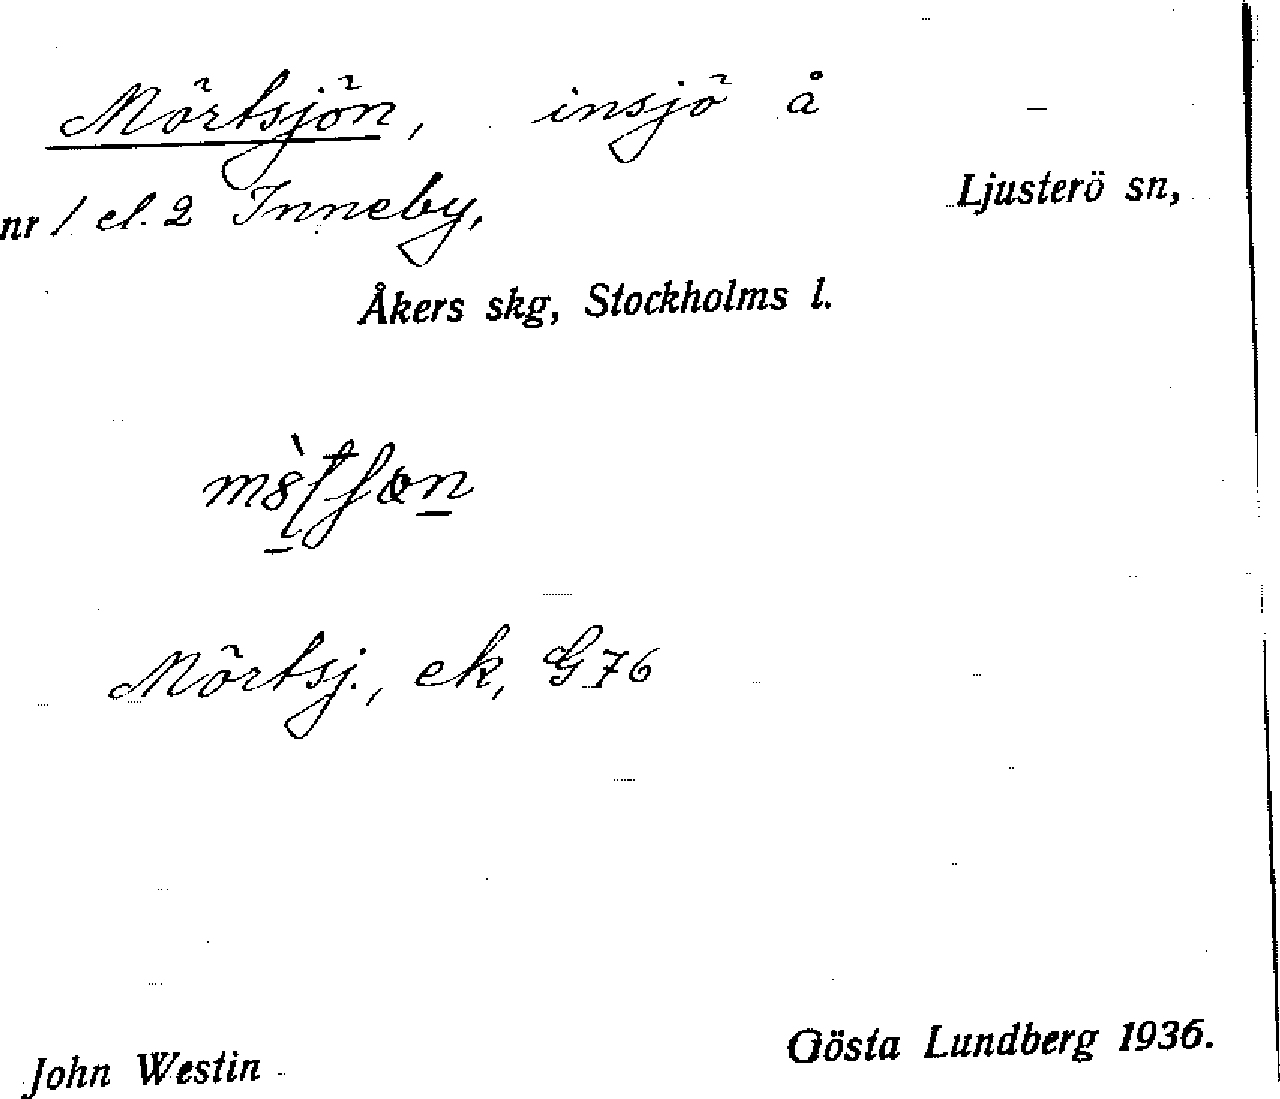 Mörtsjön, insjö å –
nr 1 el. 2 Inneby, Ljusterö sn,
Åkers skg, Stockholms l.
Mörtsj., ek, G 76
John Westin Gösta Lundberg 1936.